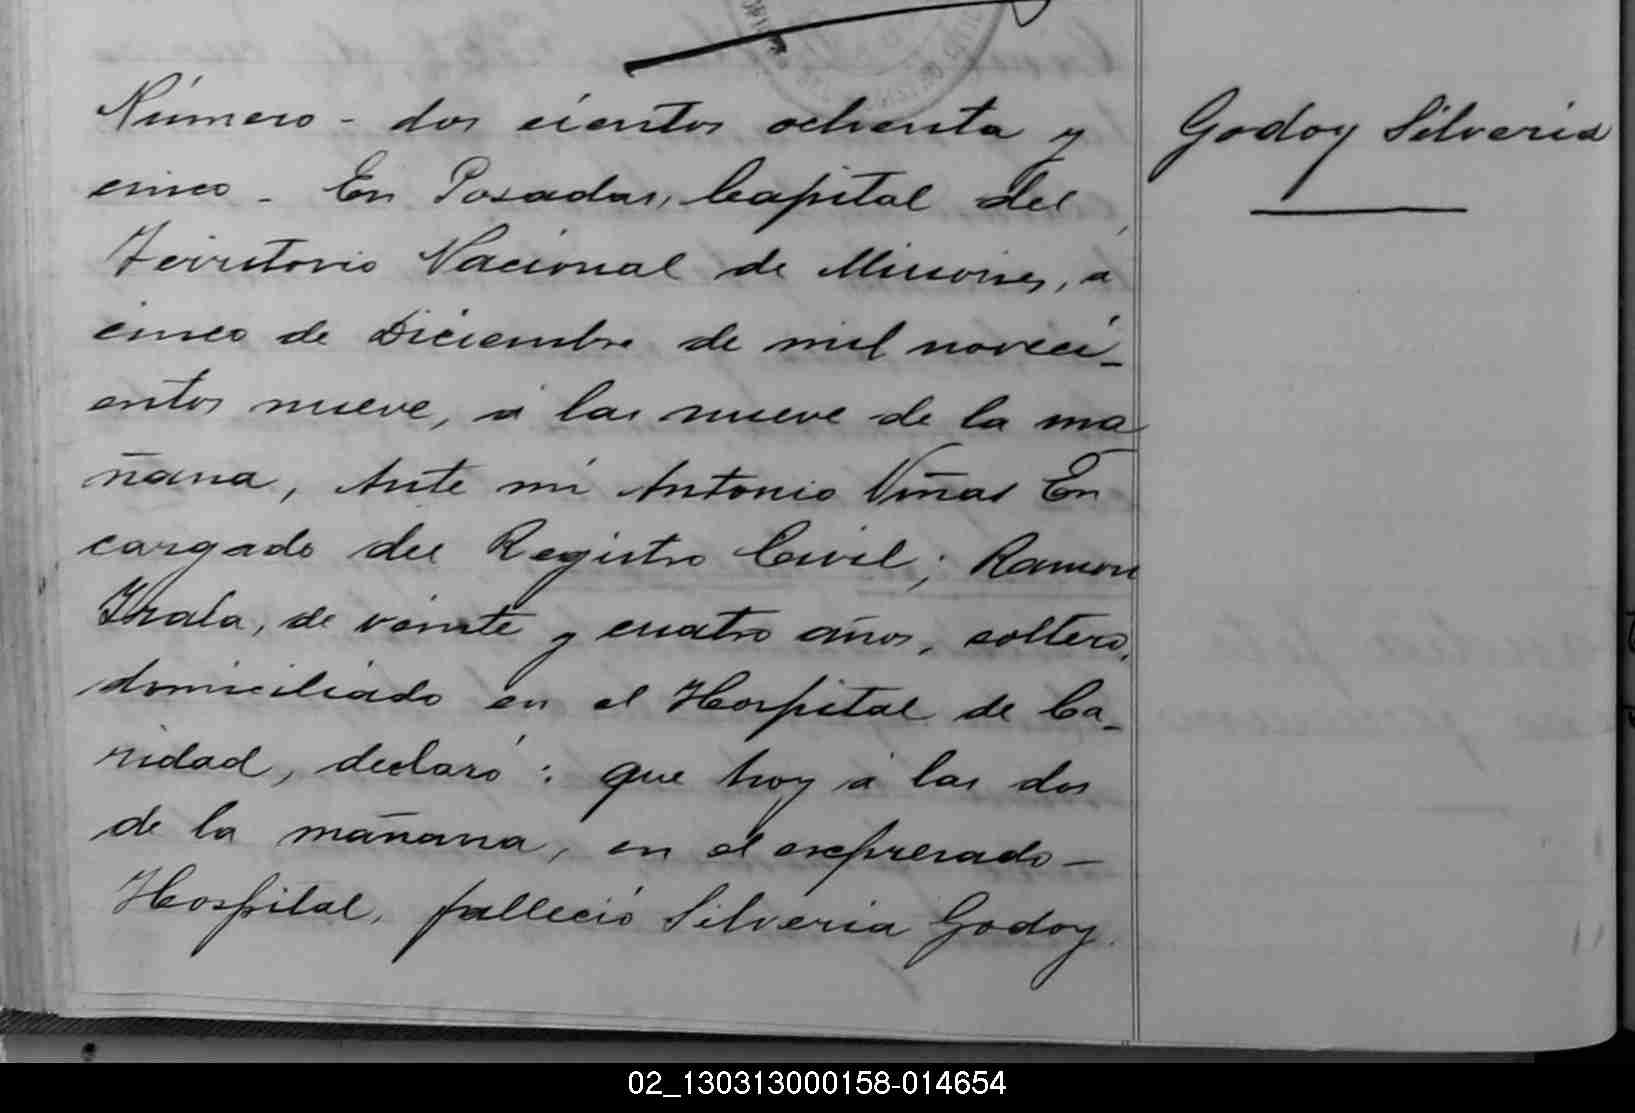 Número - dos cientos ochenta y
cinco - En Posadas, Capital del
Territorio Nacional de Misiones, á
cinco de Diciembre de mil noveci-
entos nueve, á las nueve de la ma
ñana, Ante mi Antonio Viñas En
cargado del Registro Civil; Ramon
Irala, de veinte y cuatro años, soltero,
domiciliado en el Hospital de Ca-
ridad, declaró: que hoy á las dos
de la mañana, en el expresado -
Hospital, falleció Silveria Godoy.
Godoy Silveria
02_130313000158-014654